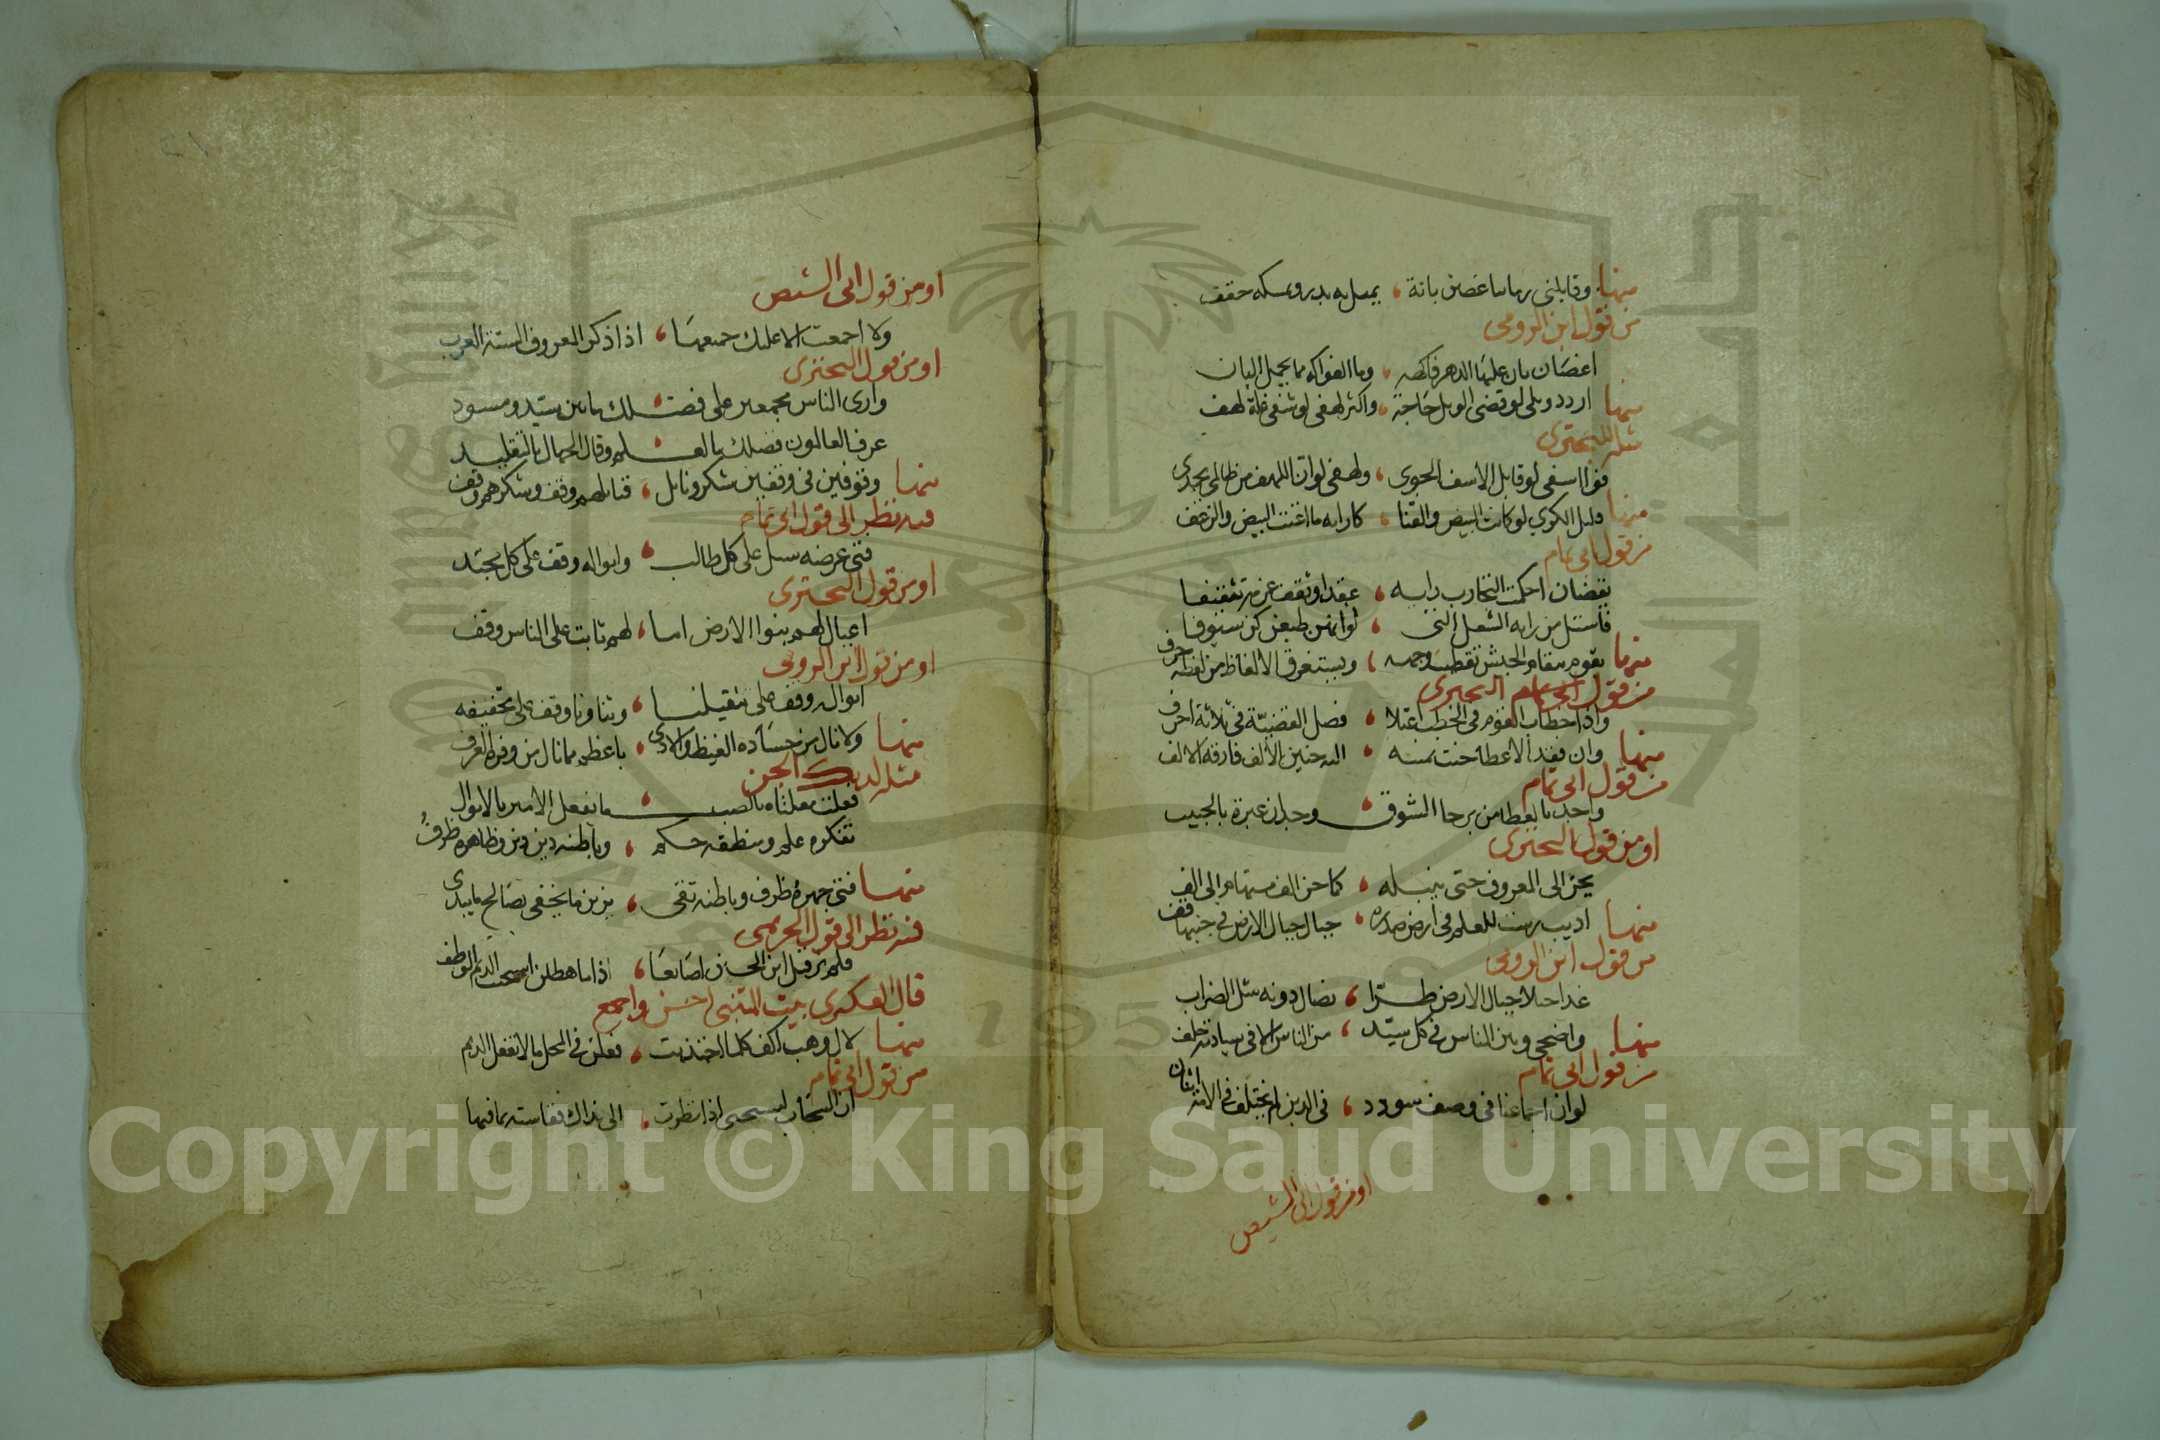 منها وقابلني رمانتا غصن بانة ، يميل به بدر ويمسكه حقف
من قول ابن الرومي
اغصان بان عليها الدهر فاكهة ، وما الفواكه مما يحمل البان
منها اردد ويلى لو قضى الويل حاجة ، واكثر لهفي لو شفى غلة لهف
مثله للبحترى
فوا اسفى لو قابل الاسف الجوى ، ولهفى لو ان اللهف من ظالمي يجدى
منها قليل الكرى لو كانت البيض والقنا ، كارايه ما اغنت البيض والزغف
من قول ابى تمام
يقظان احكمت التجارب رايه ، عقدا وثقف عزمه تثقيفا
فاستل من رايه الشعل التى ، لو انهن طبعن كن سيوفا
منها يقوم مقام الجيش تقطيب وجهه ، ويستغرق الالفاظ من لفظه حرف
من قول البحترى
واذا خطاب القوم في الخطب اعتلا ، فصل القضية في ثلاثة احرف
منها وان فقد الاعطا حنت يمينه ، اليه حنين الالف فارقه الالف
من قول ابى تمام
واجد بالعطا من برحا الشوق ، وجدان غيره بالحبيب
او من قول البحترى
يحن الى المعروف حتى ينيله ، كما حن الف مستهام الى الف
منها اديب رست للعلم في ارض صدره ، جبال جبال الارض في جنبها قف
من قول ابن الرومي
غدا جبلا جبال الارض طرّا ، تضال دونه مثل الضراب
منها واضحى وبين الناس في كل سيّد ، من الناس الا في سيادته خلف
من قول ابى تمام
لو ان اجماعنا في وصف سودد ، في الدين لم يختلف في الامة اثنان
او من قول ابى الشيص
او من قول ابى الشيص
ولا اجمعت الا عليك جميعها ، اذا ذكر المعروف السنة العرب
او من قول البحترى
وارى الناس مجمعين على فضلك ما بين سيّد ومسود
عرف العالمون فضلك بالعلم وقال الجهال بالتقليد
منها وقوفين في وقفين شكر ونايل ، فنايلهم وقف وشكرهم وقف
فيه نظر الى قول ابى تمام
فتى عرضه سبل على كل طالب ، وامواله وقف على كل مجتد
او من قول البحترى
او من قول ابن الرومي
امواله وقف على تثقيلنا ، وثناونا وقف على تخفيفه
منها ولا نال من حساده الغيظ والاذى ، باعظم مما نال من وفره العرف
مثله لديك الجن
فعلت مقلتاه بالصب ما يفعل الامير بالاموال
تفكره علم ومنطقه حكم ، وباطنه دين وظاهره ظرف
منها فتى جهره ظرف وباطنه تقى ، يزين ما يخفى بصالح ما يبدى
فيه نظر الى قول الخزيمى
اذا ما هطلن استحيت الديم الوطف
قال العكبرى بيت المتنبى احسن واجمع
من قول ابى تمام
ان السحاب ليستحيى اذا نظرت ، الى نداك فقاسته بما فيها
Copyright © King Saud University